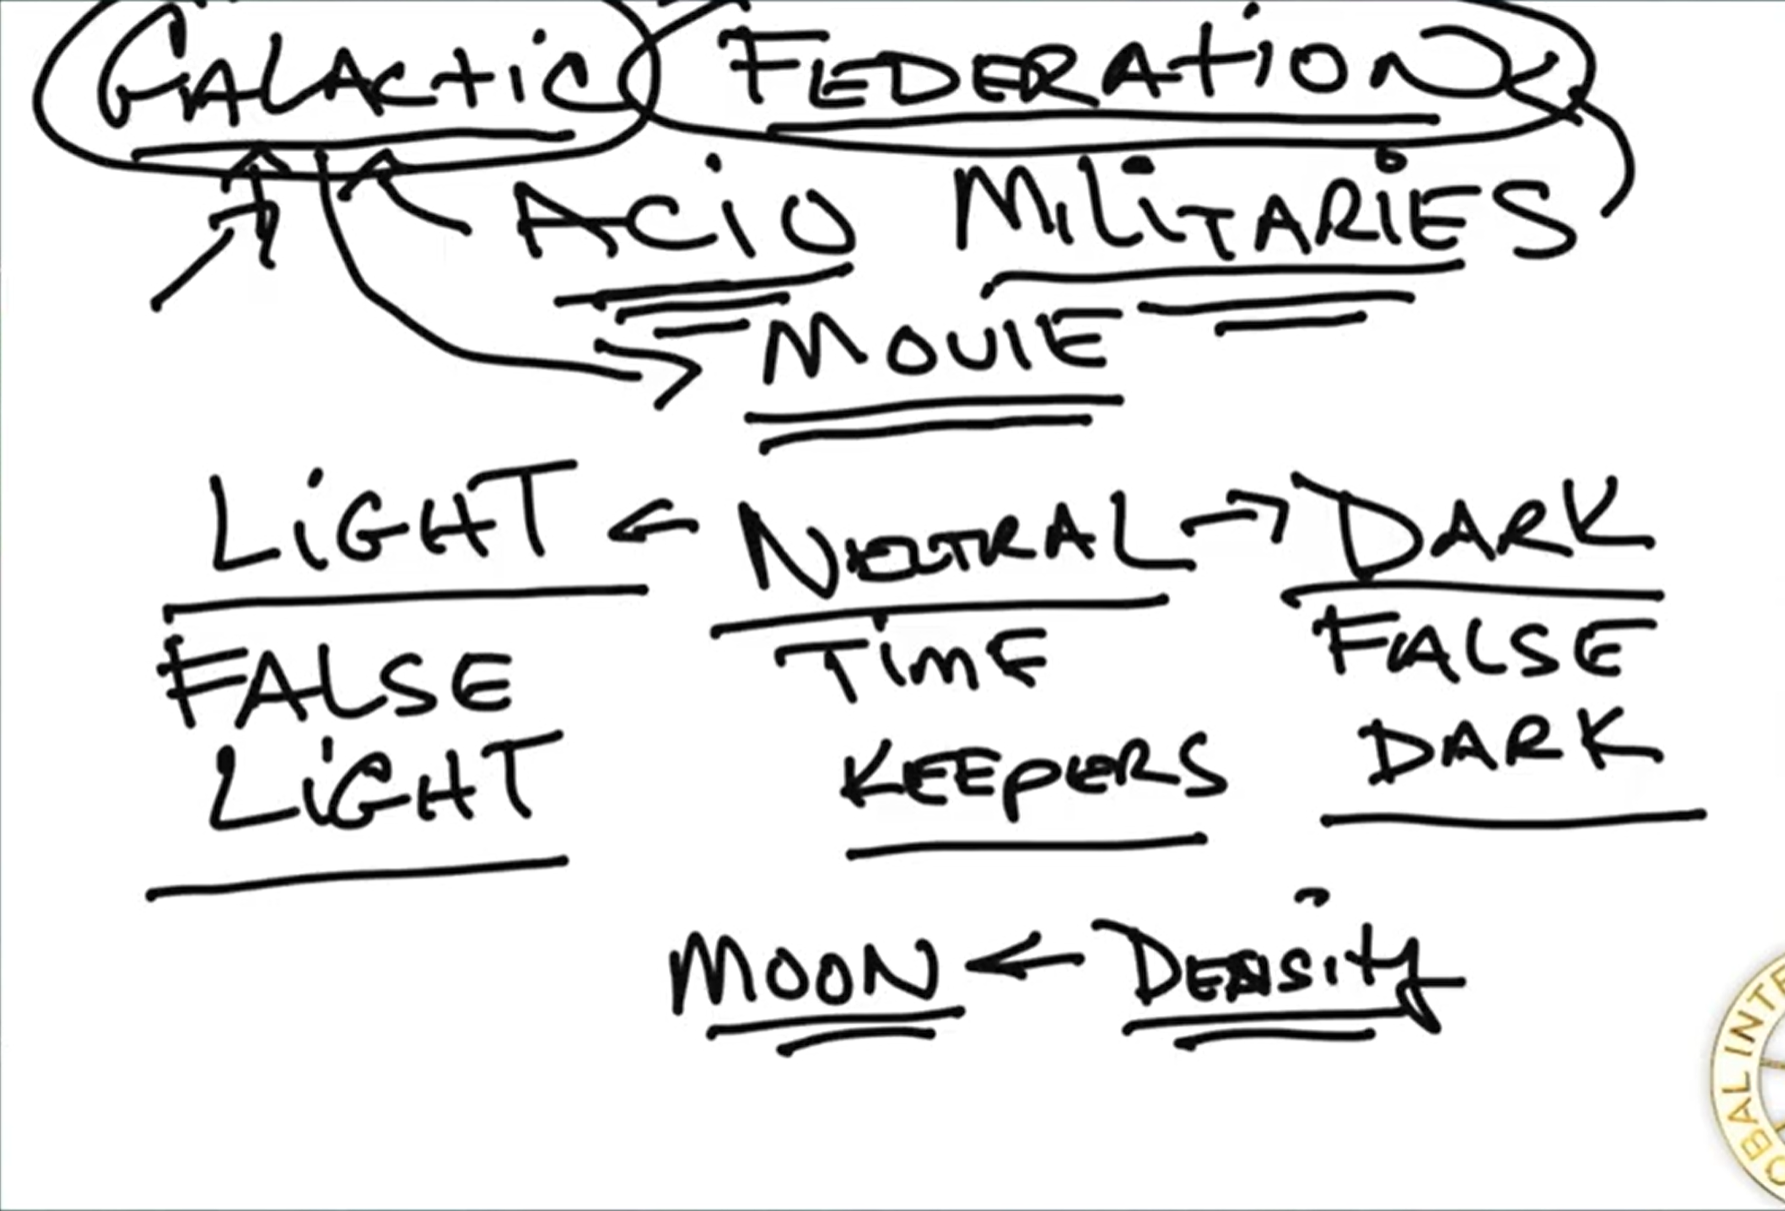 GALACTIC FEDERATION
ACIO MILITARIES
MOVIE
LIGHT NEUTRAL DARK
FALSE TIME FALSE
LIGHT KEEPERS DARK
MOON DENSITY
OBAL INTE